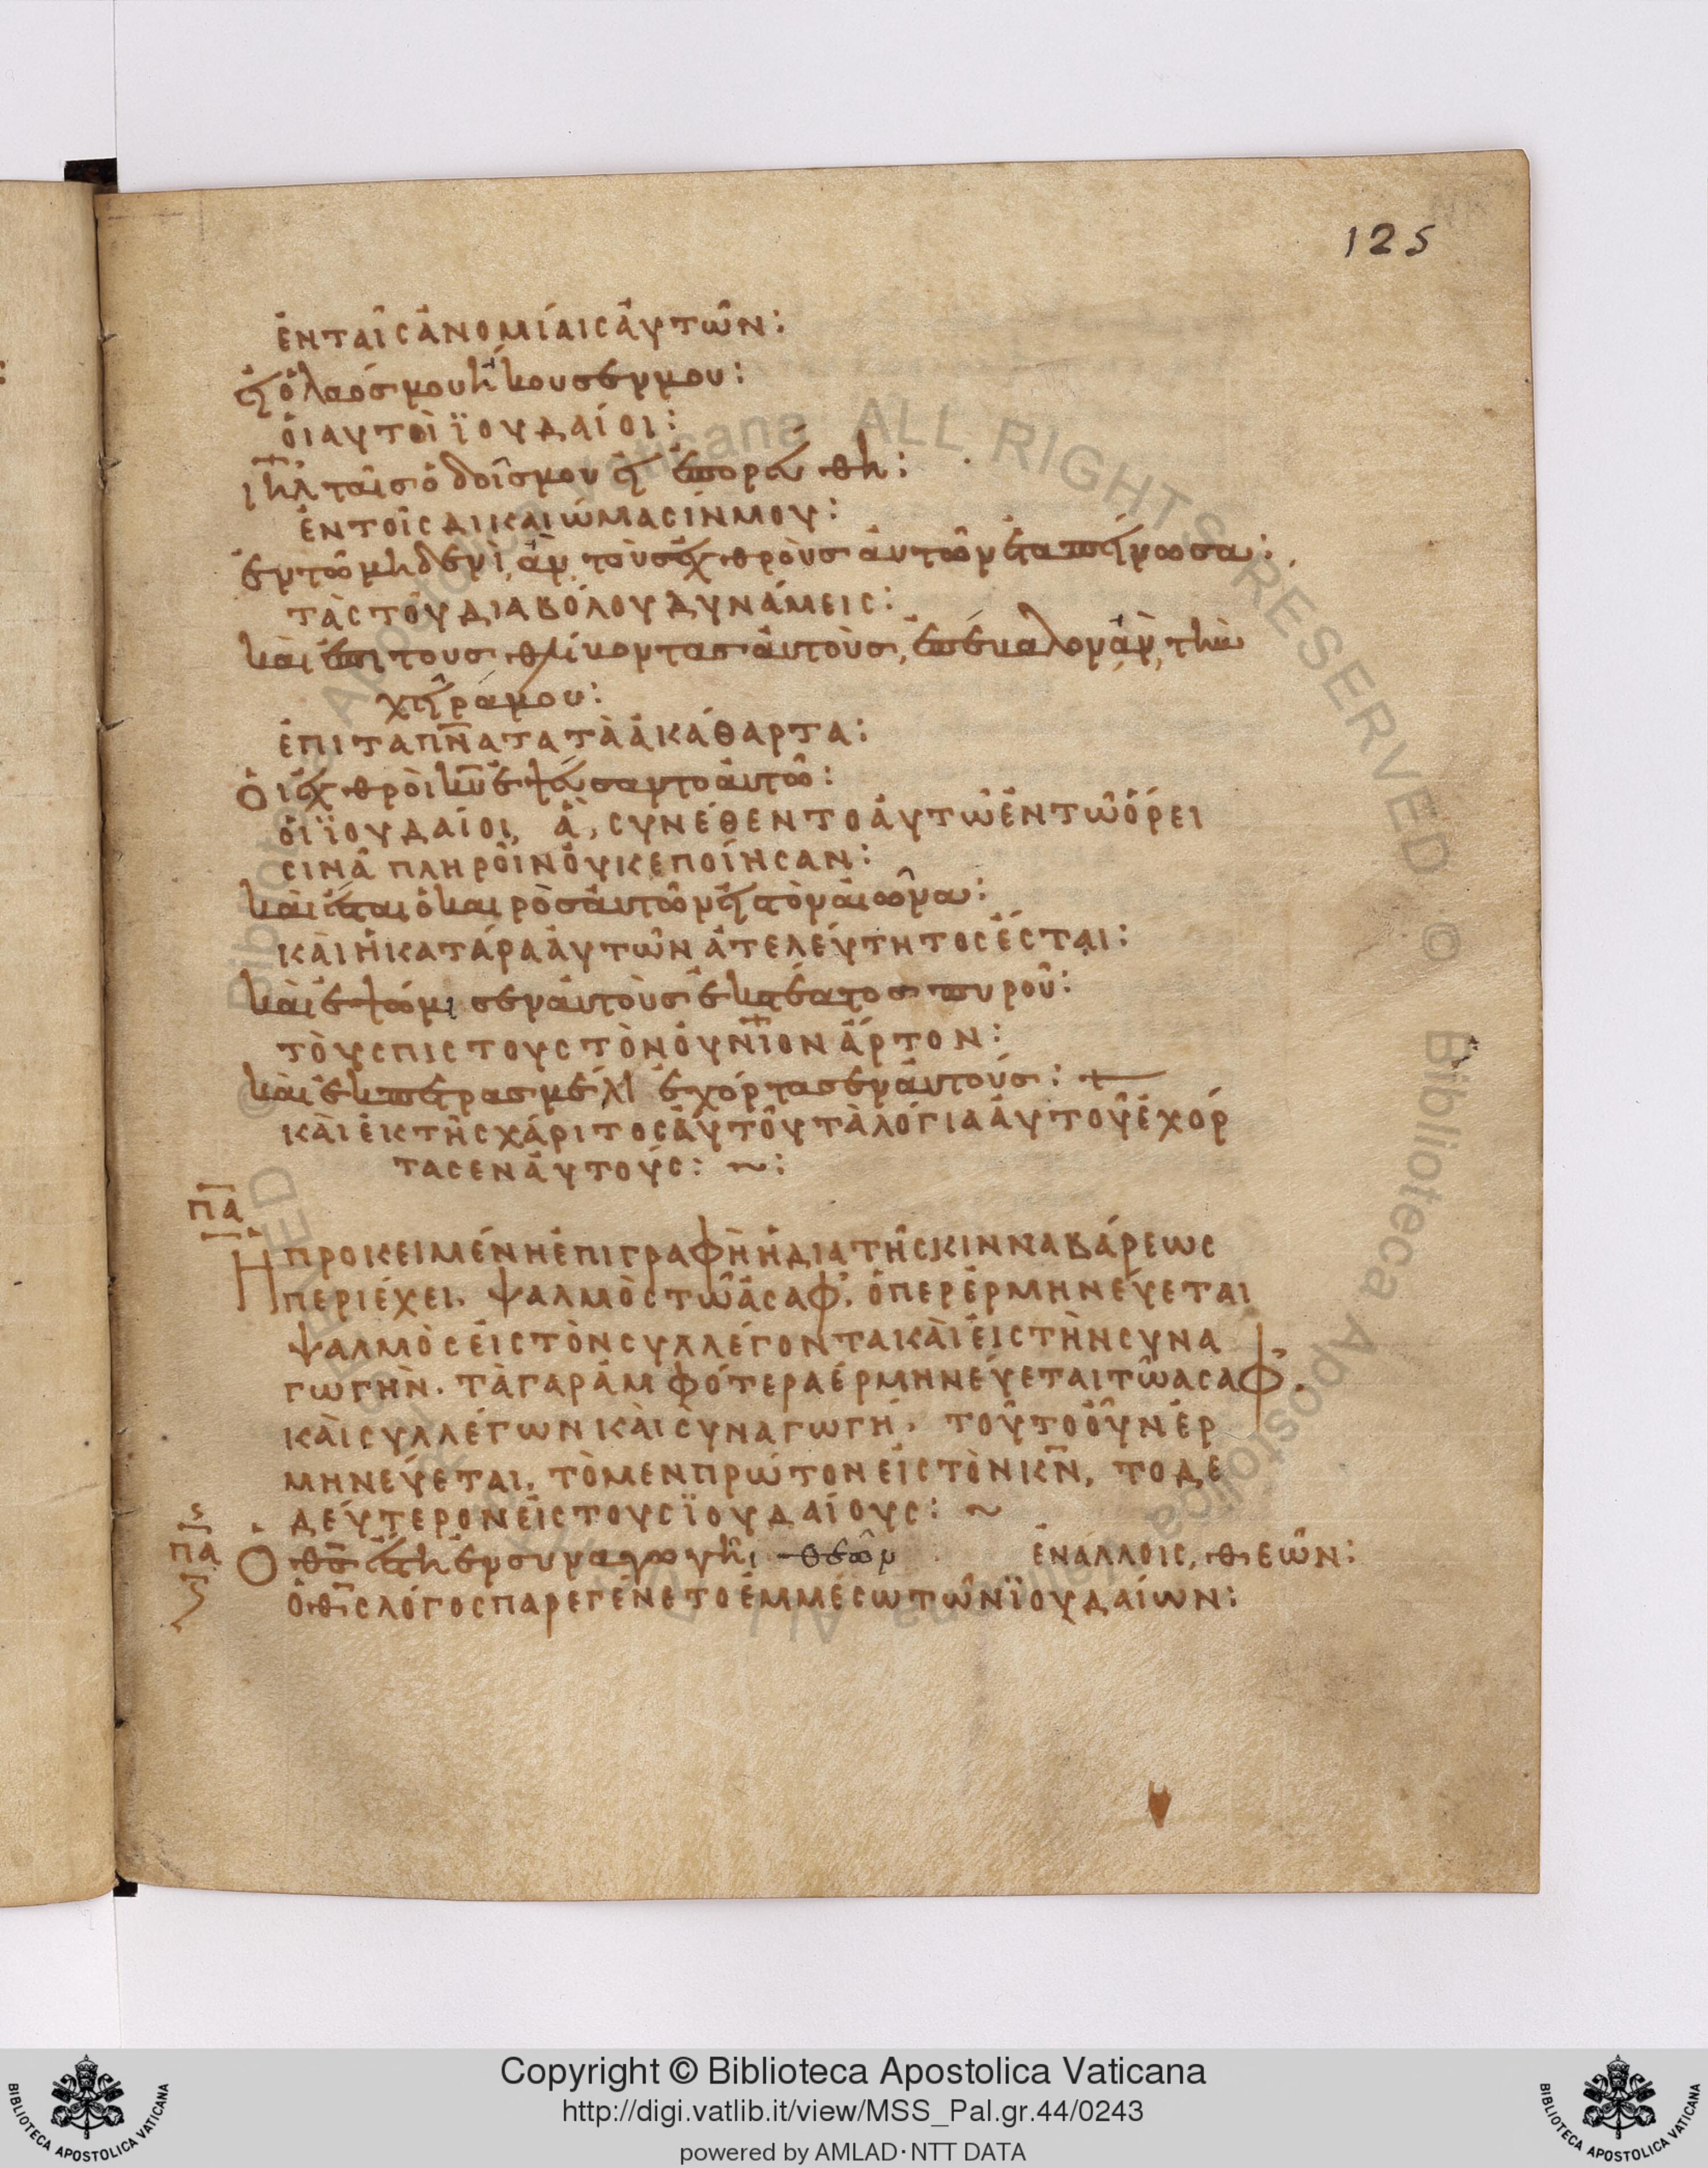 125
ἐν ταῖς ἀνομίαις ἀυτῶν:
εἰ ὁ λαός μου ἤκουσεν μου:
ὁι αυτοὶ ϊουδαίοι:
ιηλ ταῖσ ὁδοῖσ μου εἰ ἐπορεύθη:
ἐν τοῖς δικαιώμασίν μου:
ἐν τῶ μηδενὶ ἀν τοὺσ ἐχθροὺσ ἀυτῶν ἐταπείνωσα:
τὰς τοῦ διαβόλου δυνάμεις:
καὶ ἐπι τουσ θλίβοντασ ἀυτοὺσ, ἐπέβαλον ἀν, τὴν
χεῖρά μου:
ἐπι τα πν̅ατα τὰ ἀκάθαρτα:
Ὁι ἐχθρὸι κ̅υ ἐψεύσαντο ἀυτῶ:
ὁι ϊουδαίοι, ἃ, συνέθεντο ἀυτῶ ἐν τῶ ὄρει
σινᾶ πληροῖν ὀυκ εποίησαν:
καὶ ἔσται ὁ καιρὸσ ἀυτῶν εἰσ τὸν ἀιῶνα:
κὰι ἡ κατάρα ἀυτῶν ἀτελέυτητος ἔσται:
καὶ ἐψώμισεν ἀυτοὺσ ἐκ στέατοσ πυροῦ:
τὸυς πιστους τὸν ὀυν̅ιον ἄρτον:
καὶ ἐκ πέτρασ μέλι ἐχόρτασεν ἀυτούσ:
κὰι ἐκ τῆς χάριτος ἀυτοῦ τὰ λόγια ἀυτοῦ ἐχόρ
τασεν ἀυτούς: ~:
π̅α
Ἡ προκειμένη ἐπιγραφὴ ἡ δια τῆς κινναβάρεως
περιέχει. ψαλμὸς τῶ ἀσαφ. ὁπερ ἑρμηνέυεται
ψαλμὸς ἐις τὸν συλλέγοντα κὰι ἐις τὴν συνα
γωγὴν. τὰ γαρ ἀμφότερα ἑρμηνέυεται τῶ ασαφ.
κὰι συλλέγων κὰι συναγωγή. τοῦτο ὀῦν ἑρ
μηνέυεται, τὸ μεν πρώτον ἐις τὸν κ̅ν, το δε
δέυτερον ἐις τους ϊουδαίους: ~
π̅α
Ὁ θ̅σ ἔστη ἐν συναγωγῆι θεῶν ἐν ἄλλοις, θεῶν:
ὁ θ̅ς λόγος παρεγένετο ἐμμέσω τῶν ϊουδαίων:
Copyright © Biblioteca Apostolica Vaticana
http://digi.vatlib.it/view/MSS_Pal.gr.44/0243
powered by AMLAD·NTT DATA